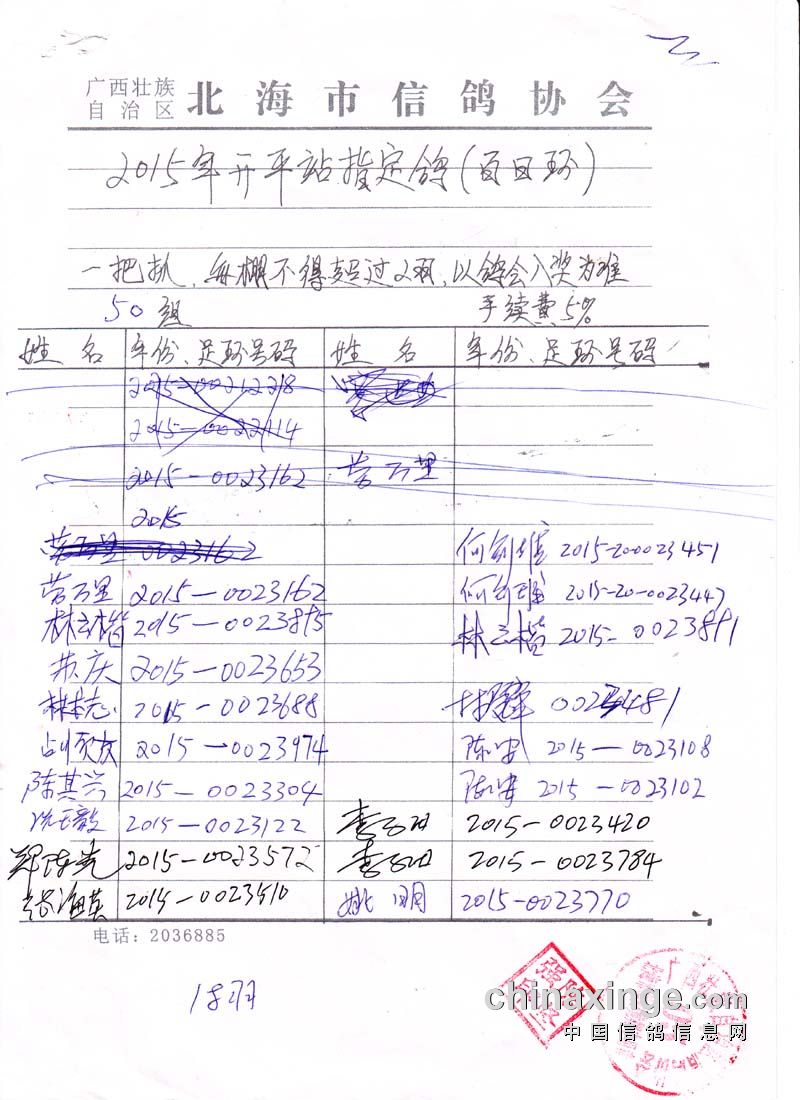 广西壮族
自治区
北海市信鸽协会
2015年开平站指定鸽(百日环)
一把抓,每棚不得超过2羽,以鸽会入奖为准
50组 手续费5%
姓 名 年份、足环号码 姓 名 年份、足环号码
2015-0021228
2015-0022114
2015-0023162 劳万里
2015
劳万里 0023162
何剑雄 2015-20-0023451
劳万里 2015-0023162 何剑雄 2015-20-0023447
林云楷 2015-0023895 林云楷 2015-0023891
苏庆 2015-0023653
林志 2015-0023688 0023481
2015-0023974 陈军 2015-0023108
陈其兴 2015-0023304 陈军 2015-0023102
沈毅 2015-0023122 2015-0023420
郑陈光 2015-0023572 2015-0023784
张海英 2015-0023510 姚明 2015-0023770
电话:2036885
18羽
chinaxinge.com
中国信鸽信息网